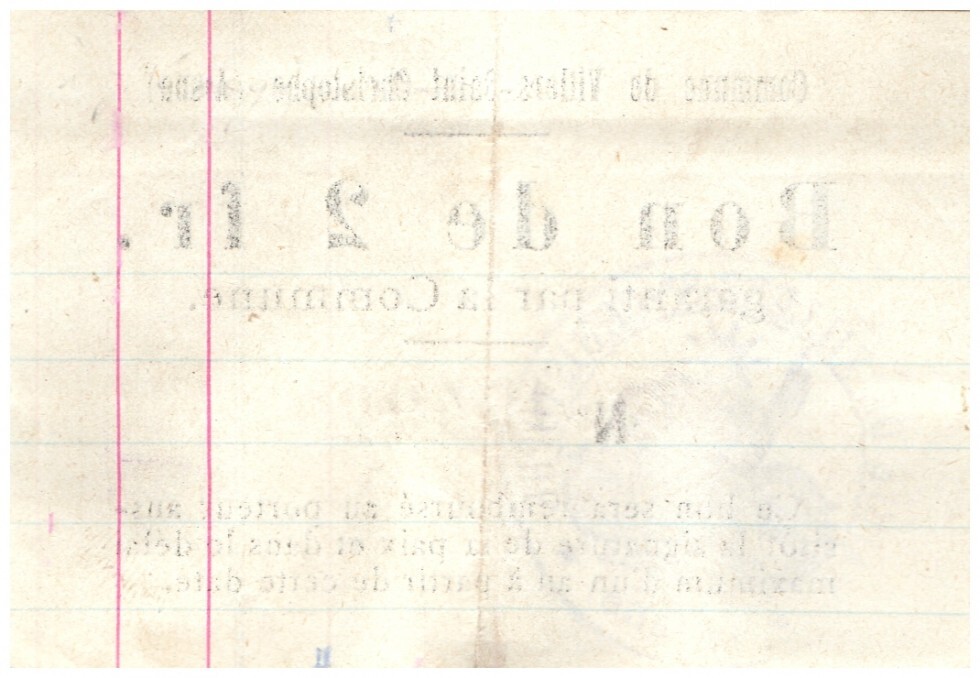 Commune de Villers-Saint-Christophe (Aisne)
Bon de 2 fr.
garanti par la Commune.
N°
Ce bon sera remboursé au porteur aus-
sitôt la signature de la paix et dans le délai
maximum d'un an à partir de cette date.